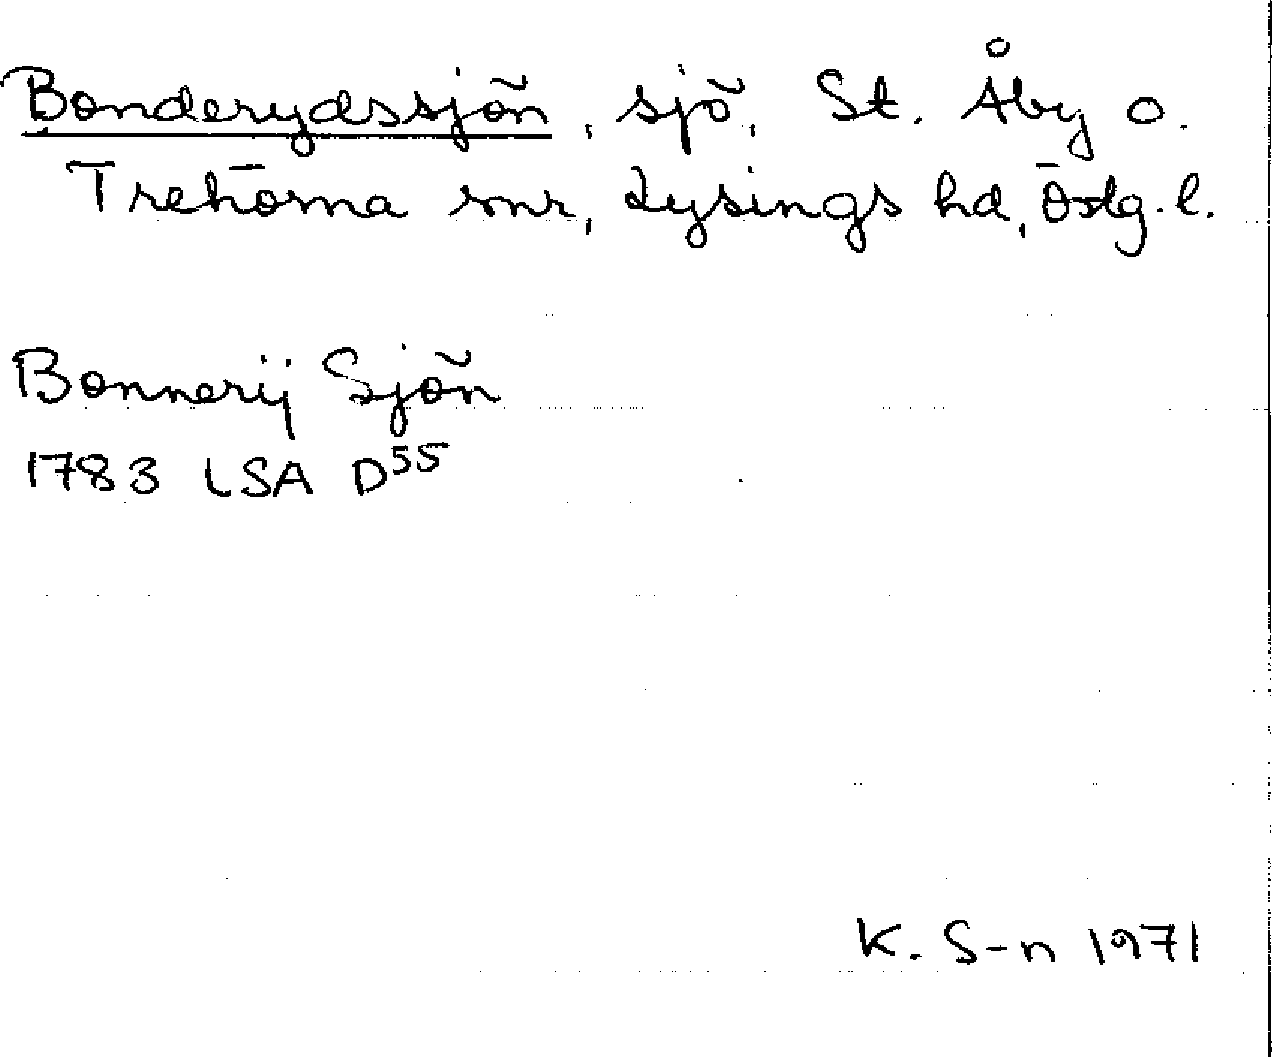 Bonderydssjön, sjö, St. Åby o.
Trehörna snr, Lysings hd, Östg. l.
Bonnerij Sjön
1783 LSA D55
K. S-n 1971